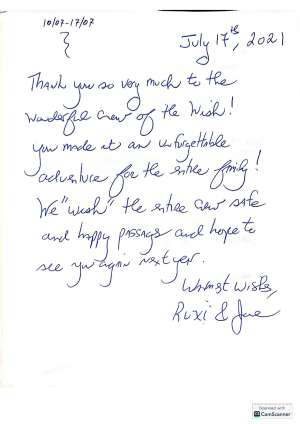 10/07-17/07
July 17th, 2021
Thank you so very much to the
wonderful crew of the Wish!
you made it an unforgettable
adventure for the entire family!
We "wish" the entire crew safe
and happy passage and hope to
see you again next year.
Warmest Wishes,
Ruxi &
Scanned with
CamScanner